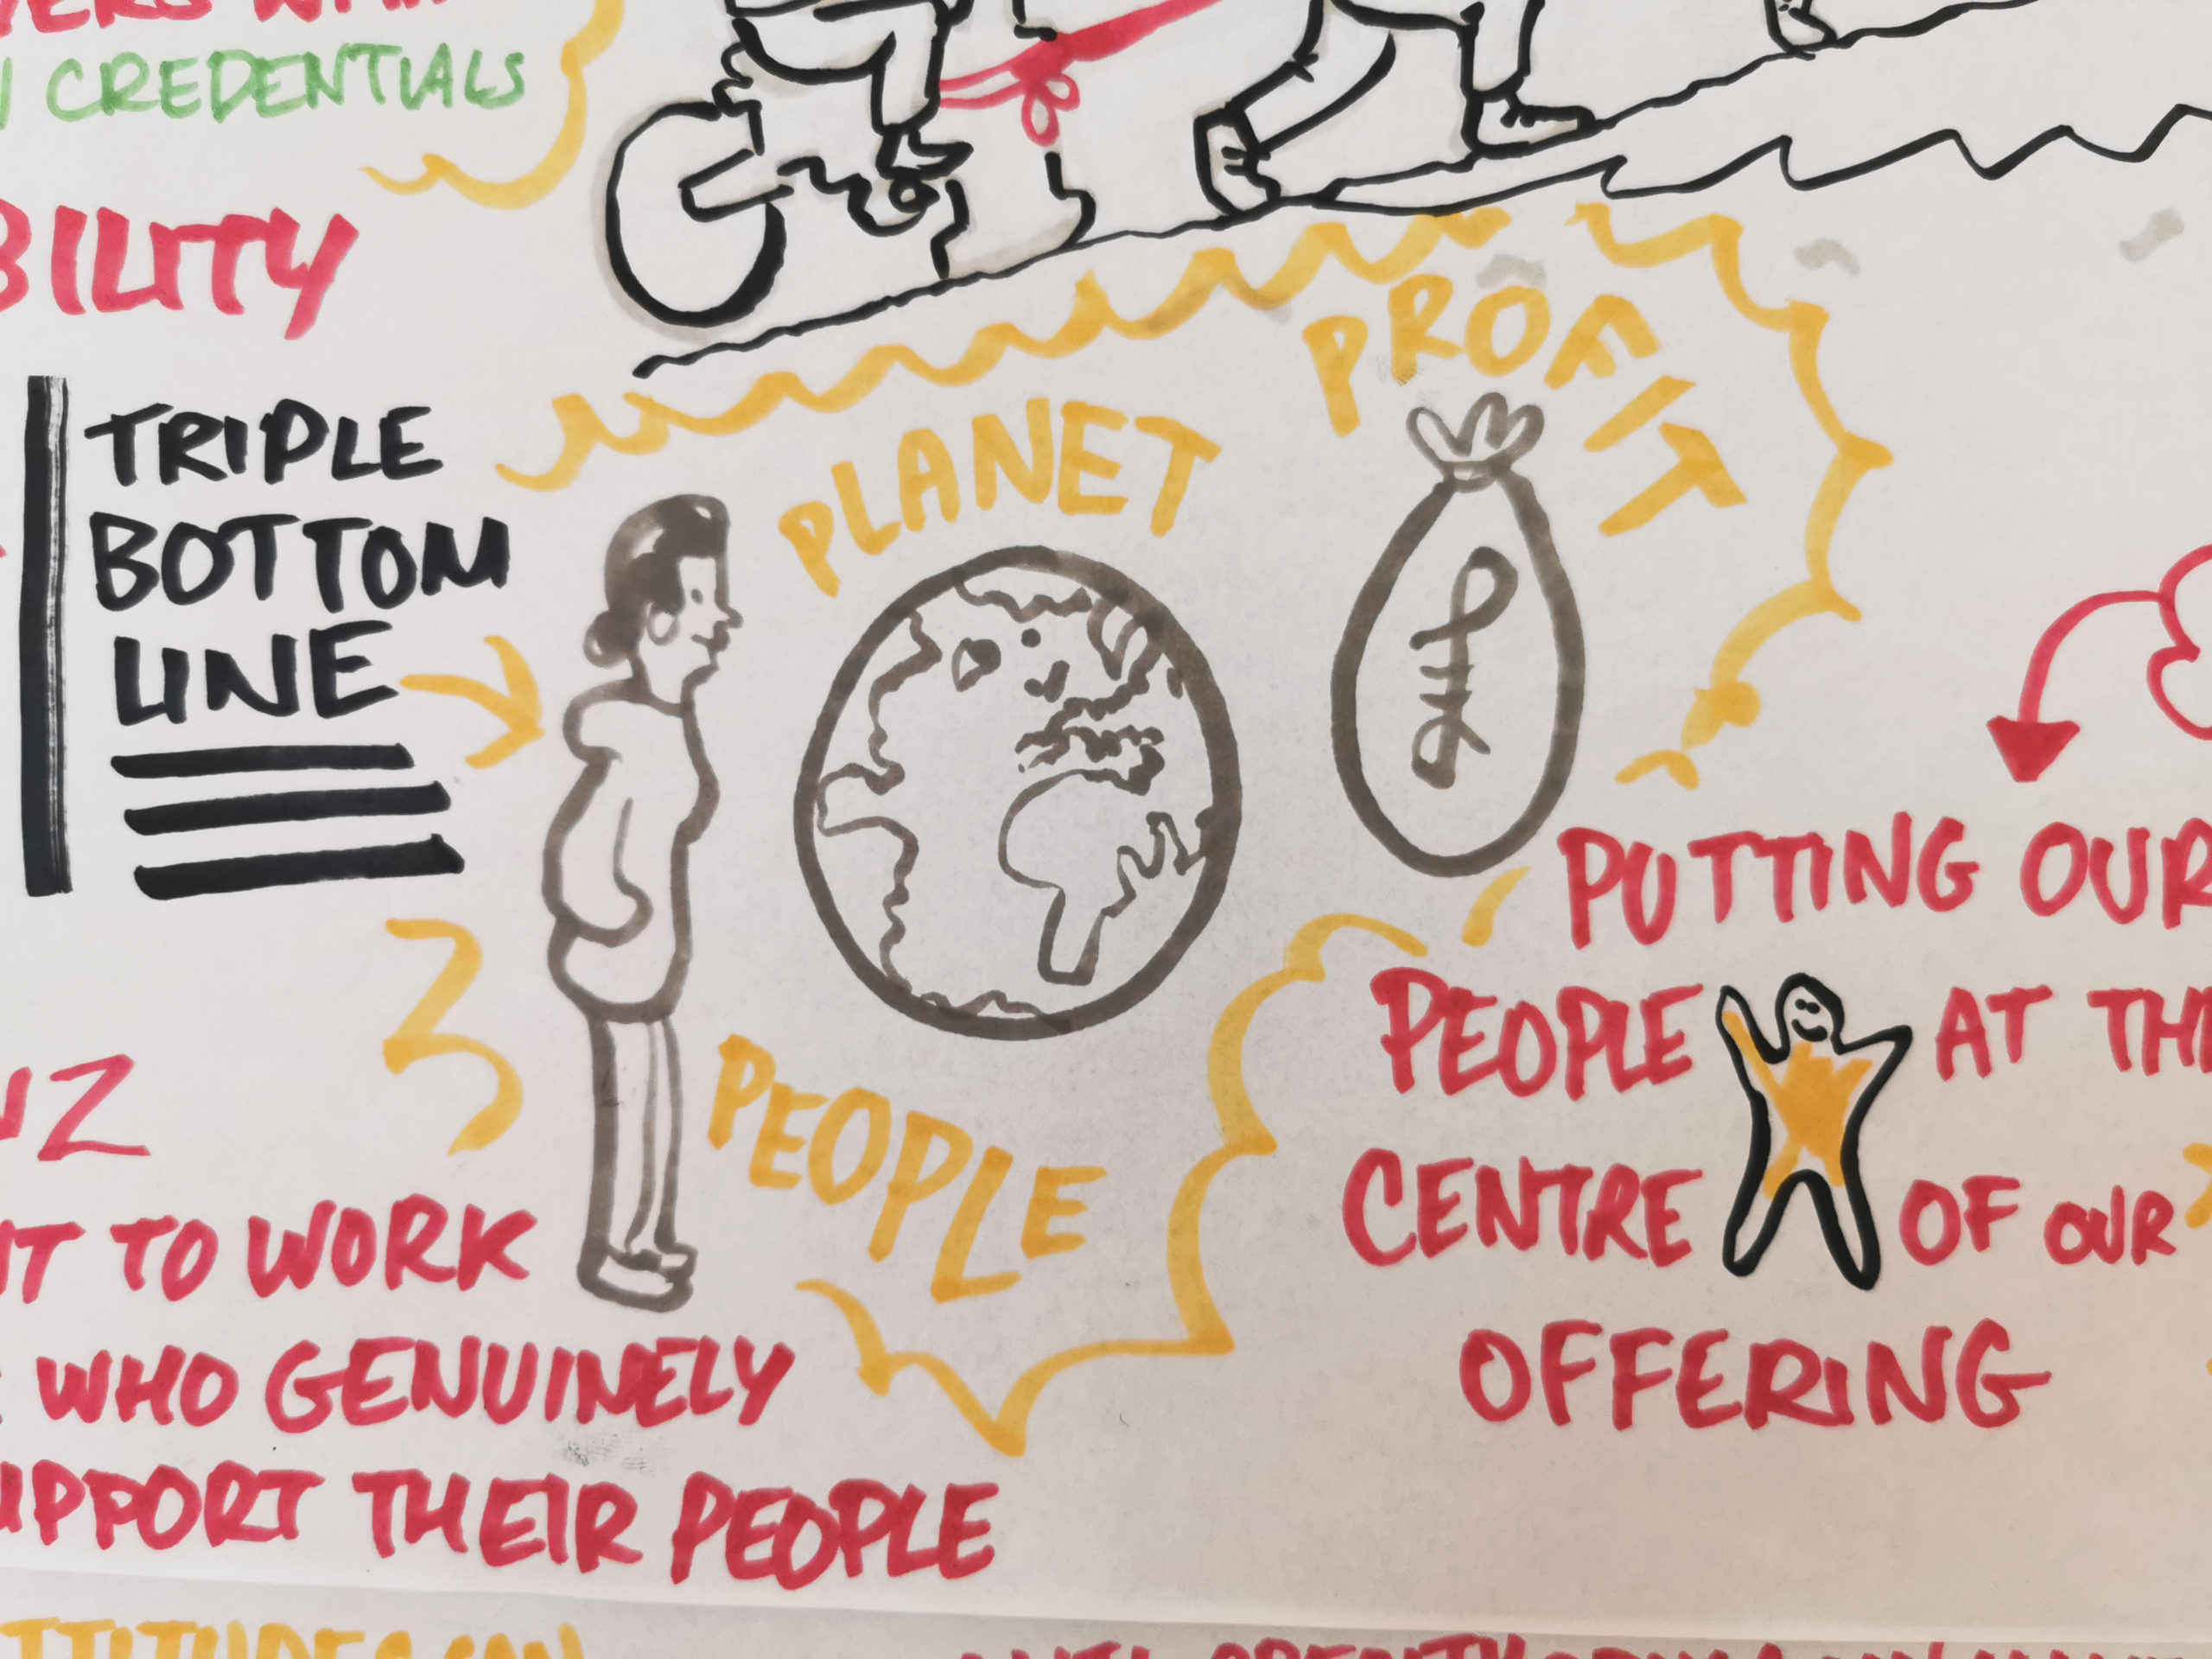 CREDENTIALS
BILITY
TRIPLE
BOTTOM
LINE
PLANET
PROFIT
£
PEOPLE
PUTTING OUR
PEOPLE AT TH
CENTRE OF OUR
OFFERING
NZ
TO WORK
WHO GENUINELY
UPPORT THEIR PEOPLE